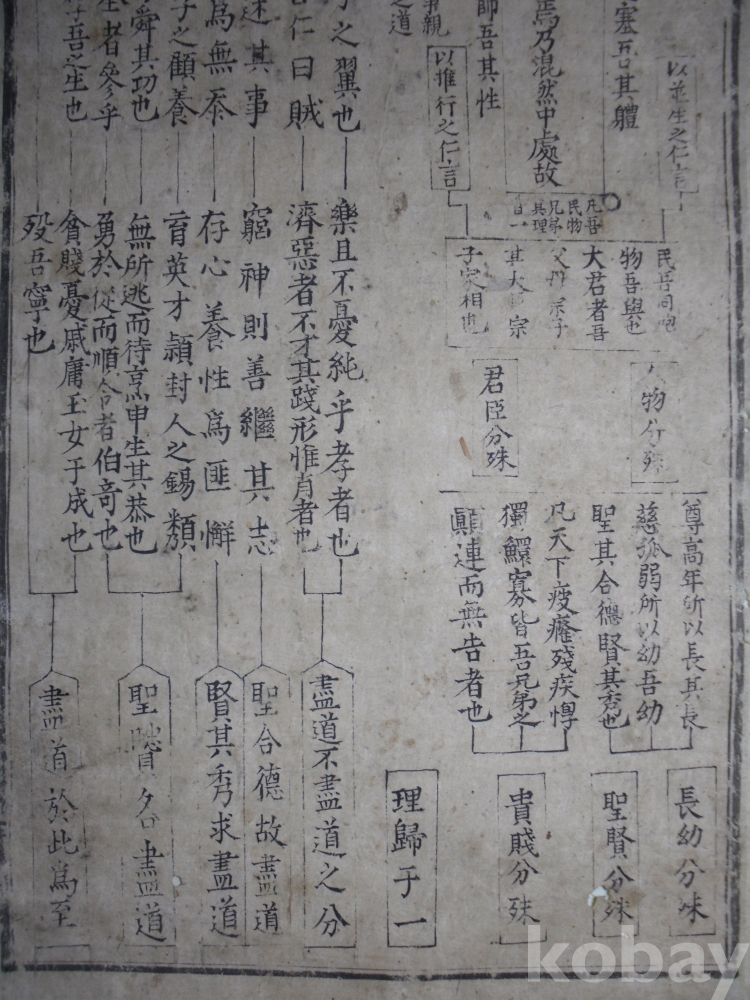 塞吾其體
焉乃混然中處故
師吾其性
事親
之道
以並生之仁言
以推行之仁言
凡吾
民物
兄弟
其理
自一
民吾同胞
物吾與也
大君者吾
父母宗子
其大臣宗
子家相也
人物分殊
君臣分殊
尊高年所以長其長
慈孤弱所以幼吾幼
聖其合德賢其秀也
凡天下疲癃殘疾惸
獨鰥寡皆吾兄弟之
顚連而無告者也
長幼分殊
聖賢分殊
貴賤分殊
理歸于一
子之翼也
樂且不憂純乎孝者也
害仁曰賊
濟惡者不才其踐形惟肖者也
述其事
窮神則善繼其志
爲無忝
存心養性爲匪懈
子之顧養
育英才穎封人之錫類
舜其功也
無所逃而待烹申生其恭也
者參乎
勇於從而順令者伯奇也
吾之生也
貧賤憂戚庸玉女于成也
歿吾寧也
盡道不盡道之分
聖合德故盡道
賢其秀求盡道
聖賢各盡道
盡道於此爲至
kobay